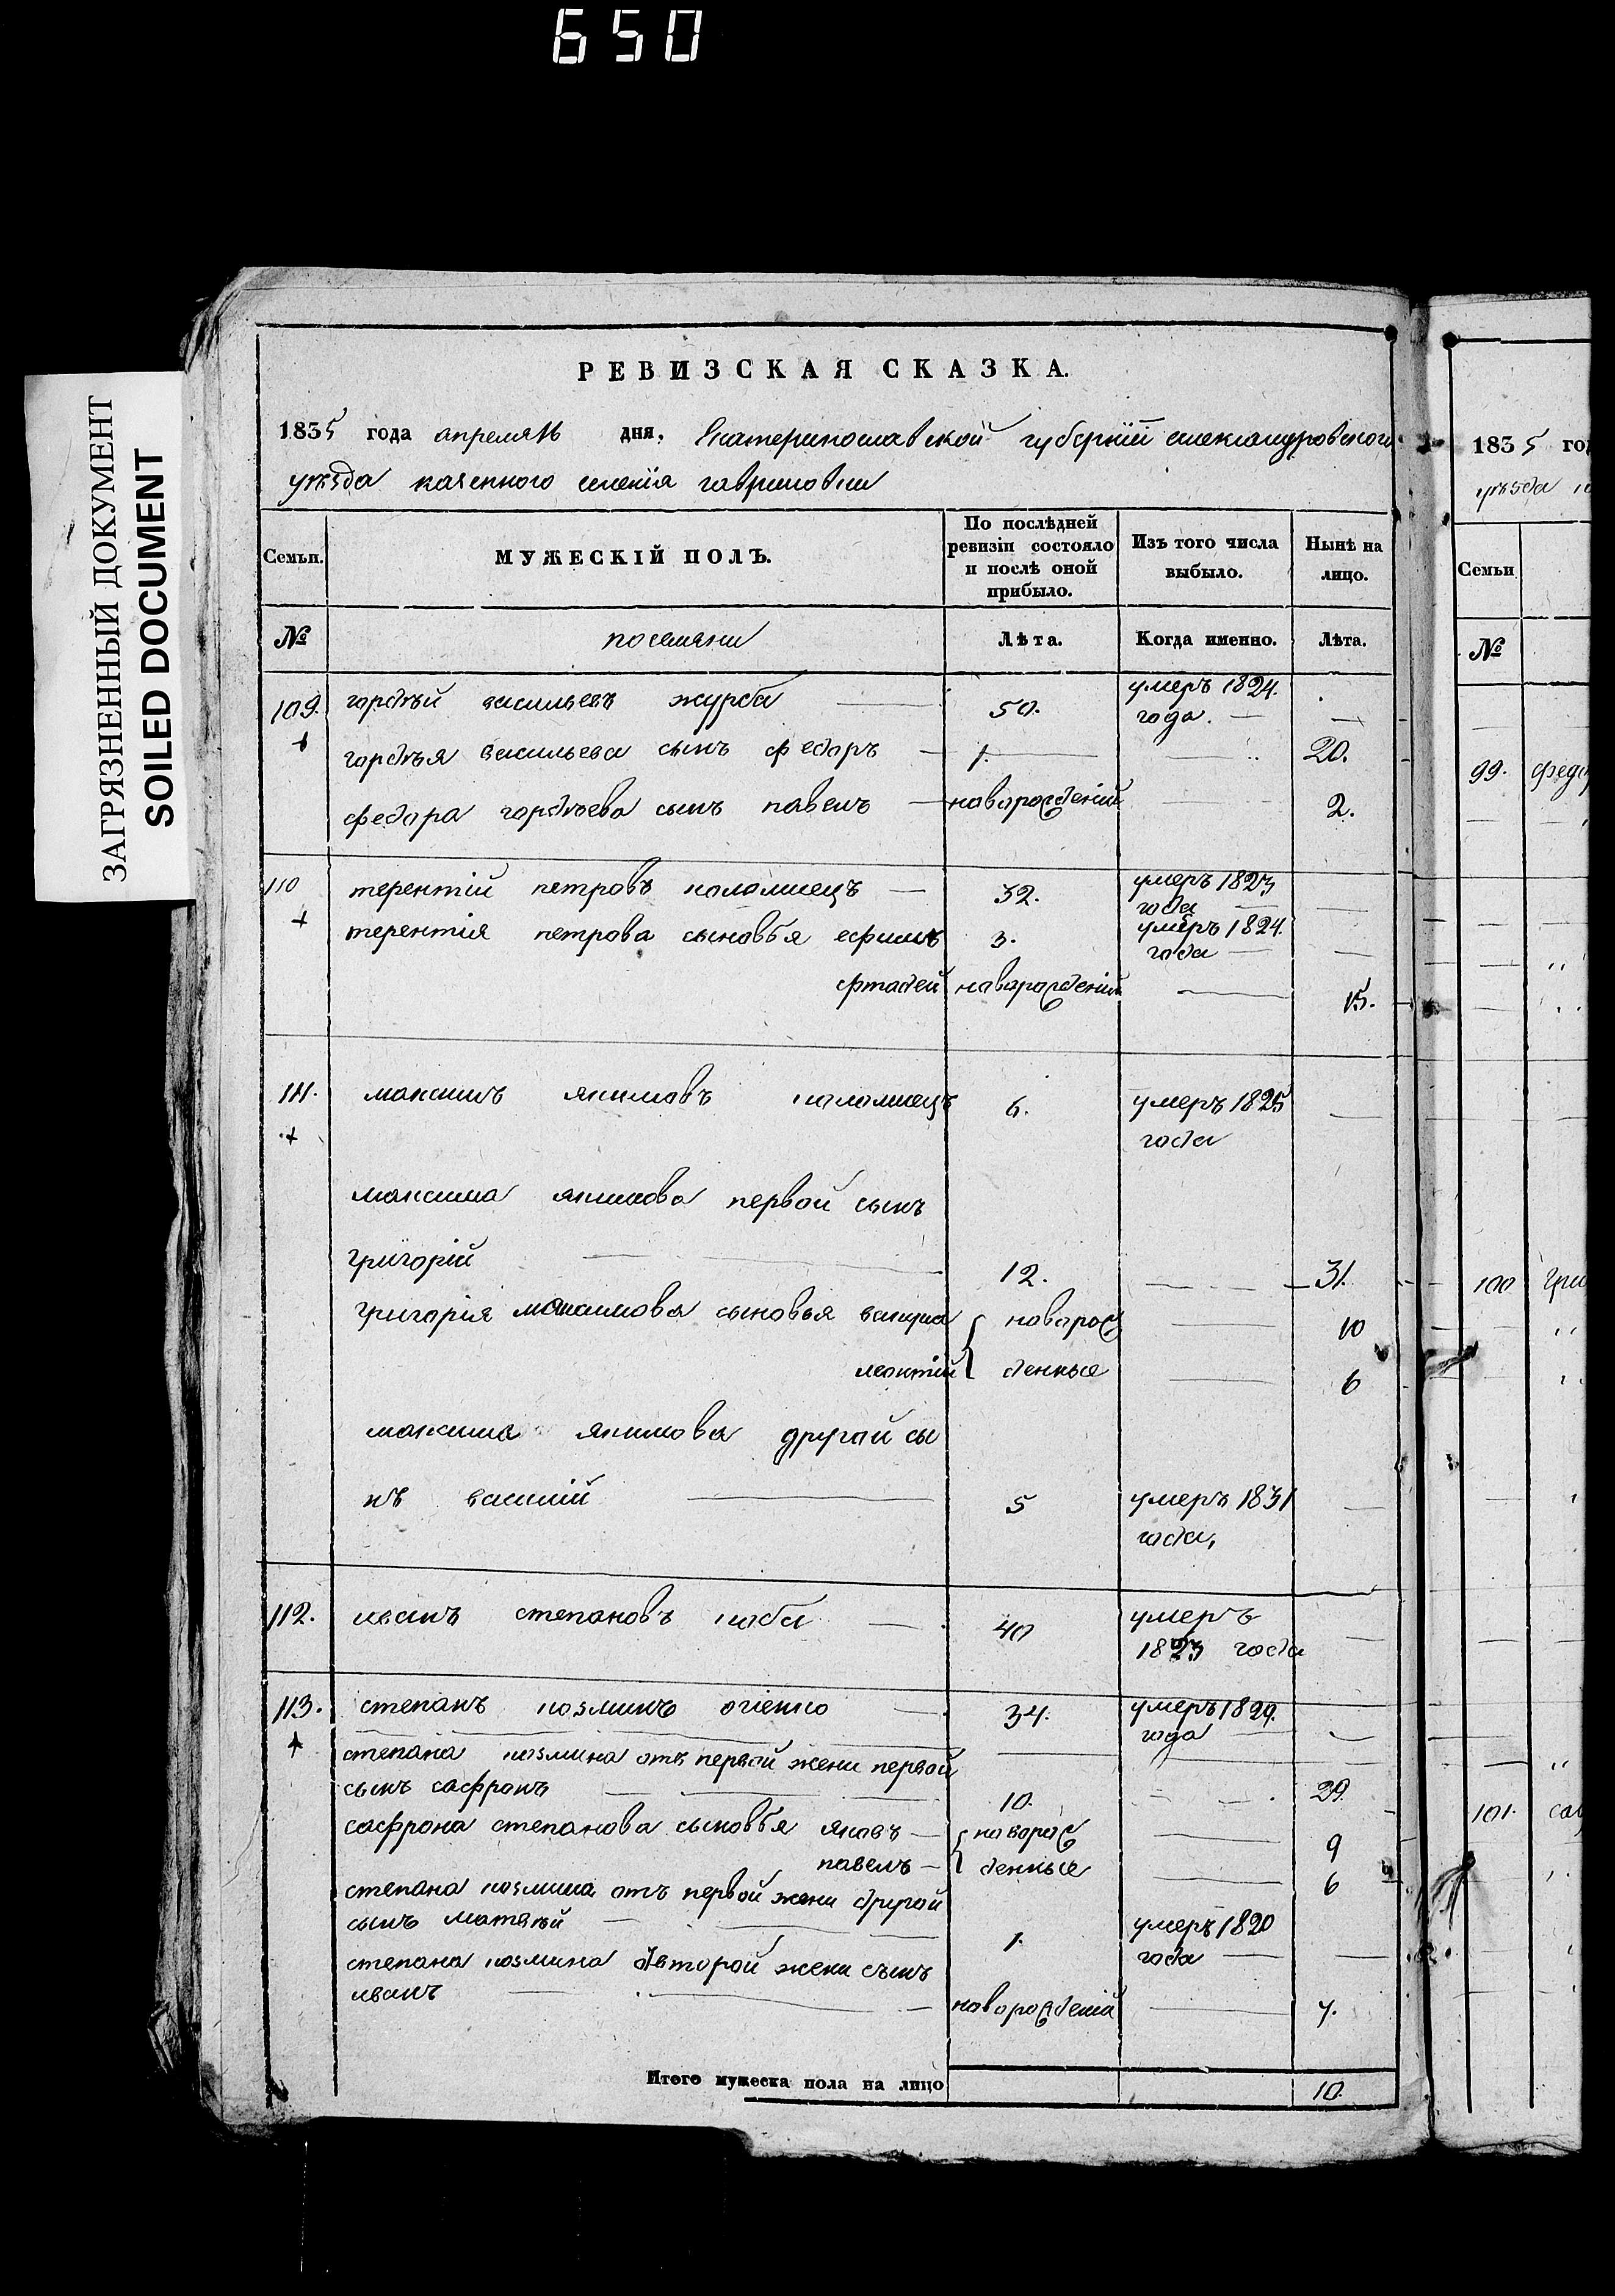 650
ЗАГРЯЗНЕННЫЙ ДОКУМЕНТ
SOILED DOCUMENT
РЕВИЗСКАЯ СКАЗКА.
1835 года апреля 16 дня, Екатеринославской губернiй александровского
уѣзда казенного селенiя гавриловки
Семьи. МУЖЕСКІЙ ПОЛЪ. По послѣдней ревизіи состояло и послѣ оной прибыло. Изъ того числа выбыло. Нынѣ на лицо.
№ поселяни Лѣта. Когда именно. Лѣта.
109. гордѣй васильевъ журба 50. умеръ 1824. года.
гордѣя васильева сынъ федоръ 1. 20.
федора гордѣева сынъ павелъ новорожденій 2.
110 терентій петровъ коломиецъ 32. умеръ 1823 года
терентія петрова сыновья ефимъ 3. умеръ 1824. года
фтадей новорожденій 15.
111. максимъ якимовъ коломиецъ 6. умеръ 1825
года
максима якимова первой сынъ
григорій 12. 31.
григорія максимова сыновья новорож 10
леонтій денные 6
максима якимова другой сы
нъ василій 5 умеръ 1831
года,
112. иванъ степановъ 40 умеръ
1823 года
113. степанъ козминъ огіенко 34. умеръ 1829. года
степана козмина отъ первой жени первой
сынъ сафронъ 10. 29
сафрона степанова сыновья яковъ новорож 9
павелъ денные 6
степана козмина отъ первой жени другой
сынъ матвѣй 1. умеръ 1820 года
степана козмина второй жени сынъ
иванъ новорожденій 7.
Итого мужеска пола на лицо 10.
1835 год
уѣзда
Семьи
№
99. федо
100 гри
101. сав